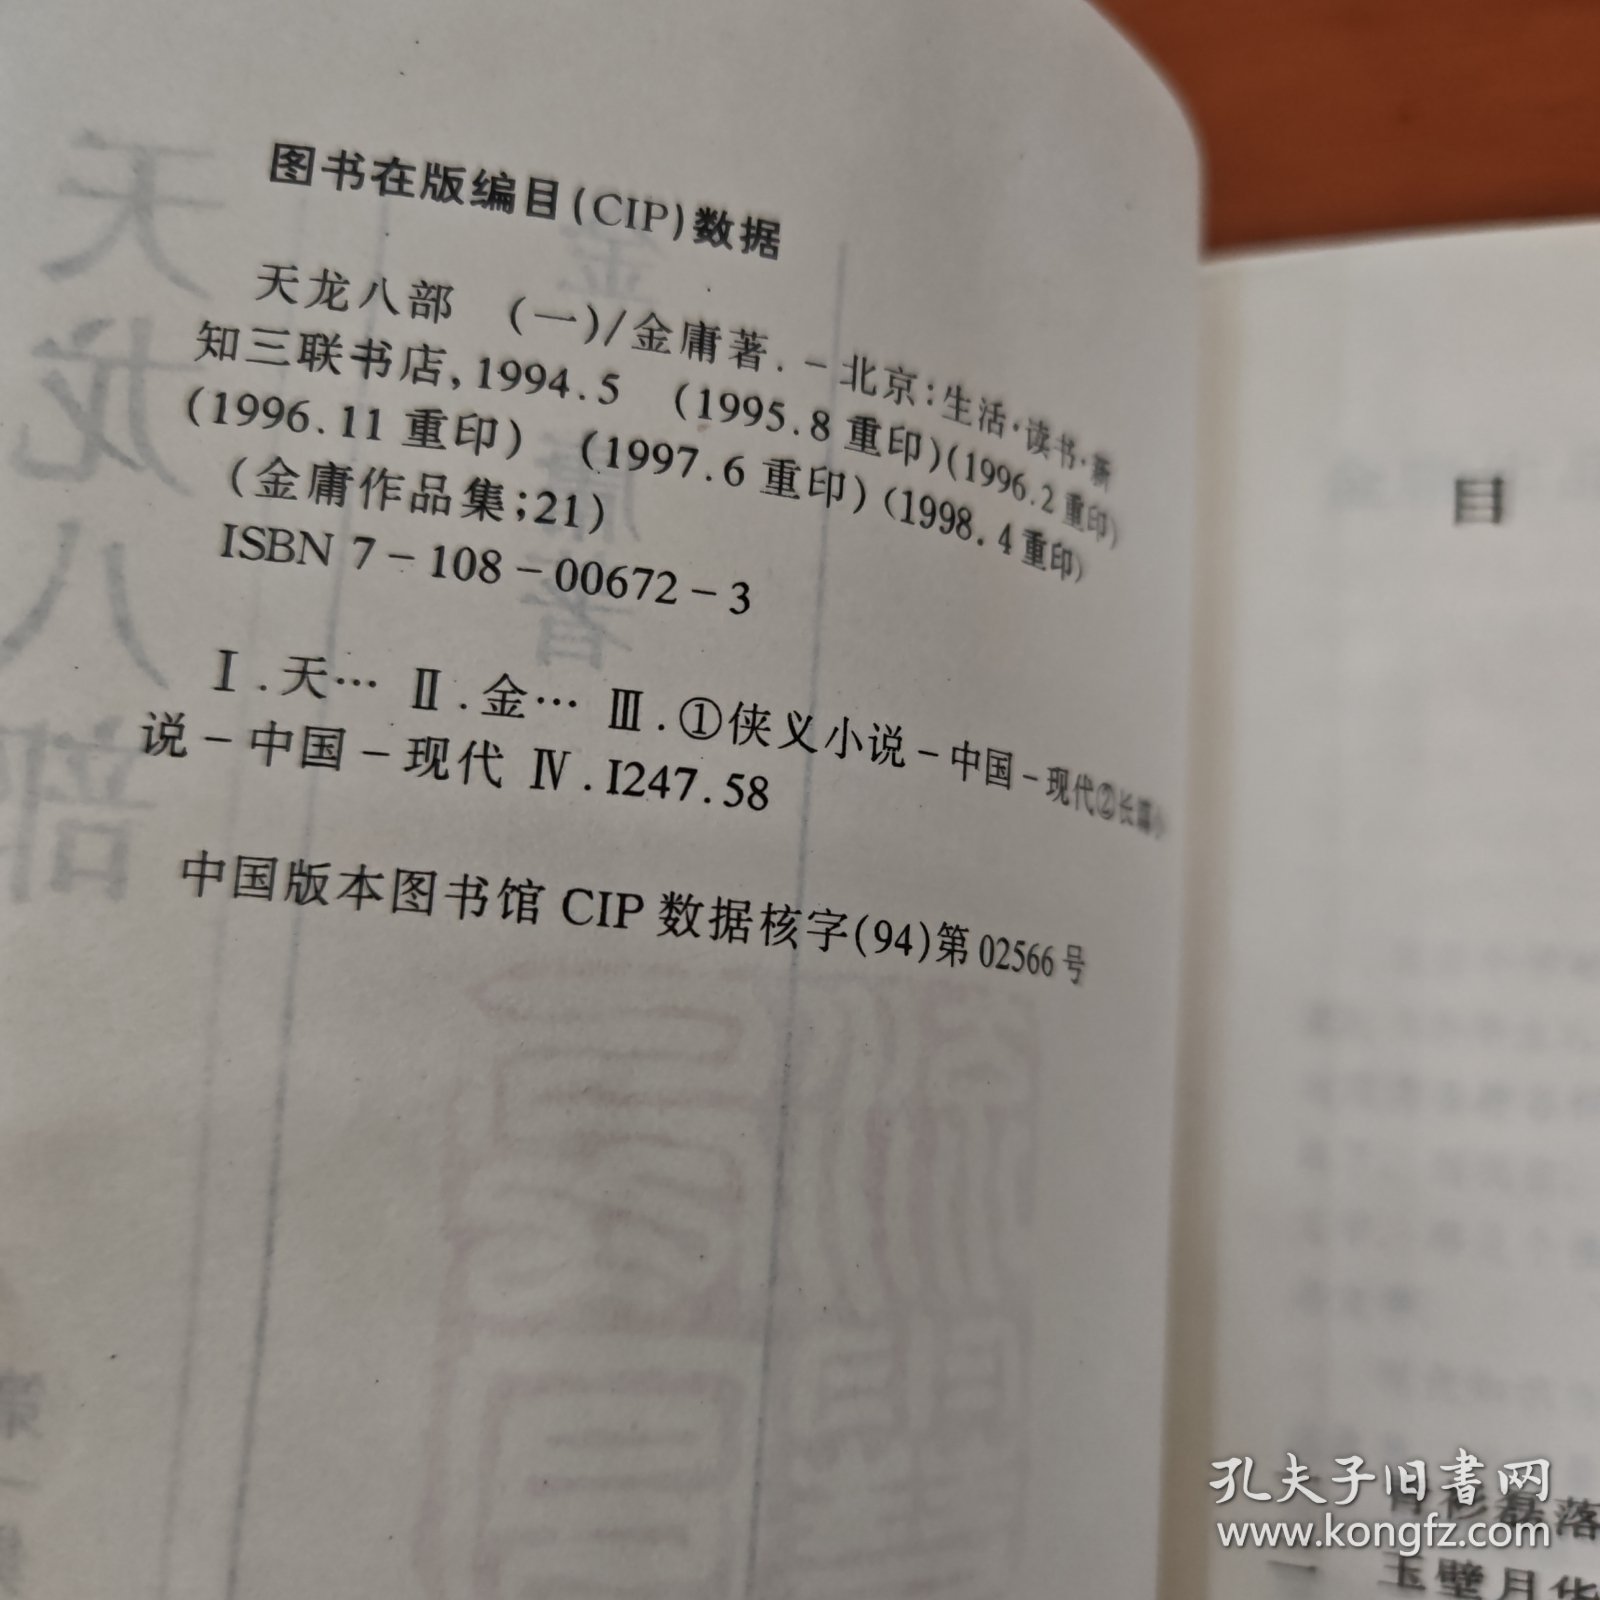 图书在版编目(CIP)数据
天龙八部 (一)/金庸著. - 北京:生活·读书·新
知三联书店, 1994.5 (1995.8 重印)(1996.2 重印)
(1996.11 重印) (1997.6 重印)(1998.4 重印)
(金庸作品集;21)
ISBN 7-108-00672-3
Ⅰ.天… Ⅱ.金… Ⅲ.①侠义小说-中国-现代②长篇小
说-中国-现代 Ⅳ.I247.58
中国版本图书馆 CIP 数据核字(94)第 02566 号
目
青衫磊落
玉壁月华
孔夫子旧書网
www.kongfz.com